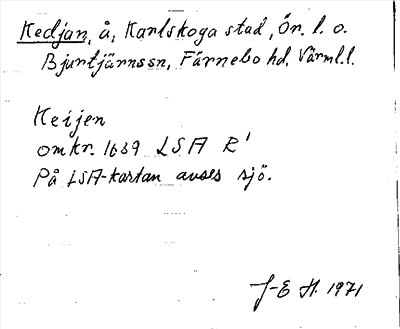 Kedjan, å, Karlskoga stad, Ör. l. o.
Bjurtjärnssn, Färnebo hd. Värml.l.
Keijen
omkr. 1639 LSA R¹
På LSA-kartan avses sjö.
J-E H. 1971